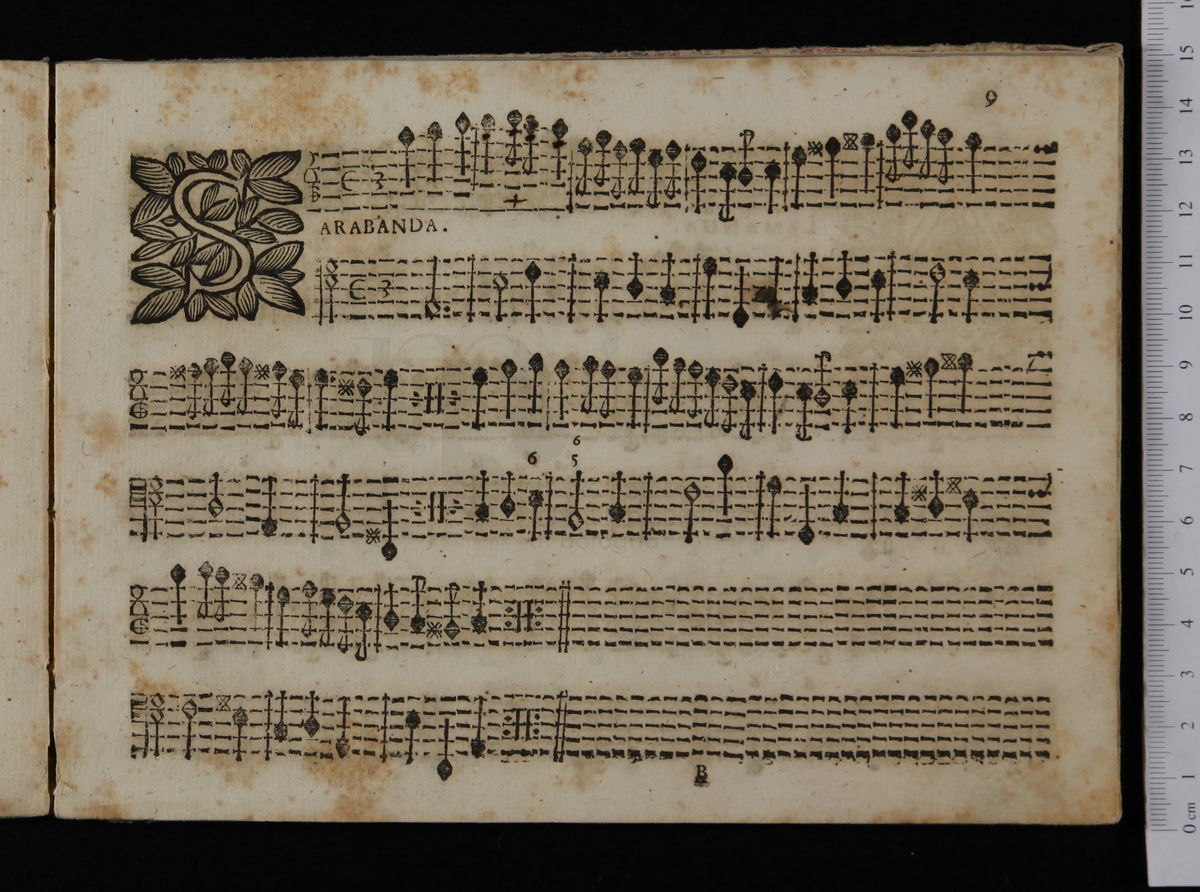 9
C 3
SARABANDA.
C 3
6
6 5
B
16
15
14
13
12
11
10
9
8
7
6
5
4
3
2
1
0 cm